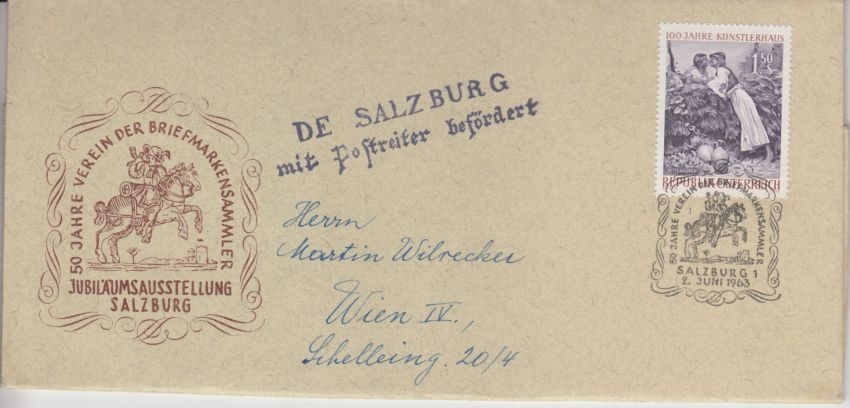 50 JAHRE VEREIN DER BRIEFMARKENSAMMLER
JUBILÄUMSAUSSTELLUNG
SALZBURG
DE SALZBURG
mit Postreiter befördert
100 JAHRE KÜNSTLERHAUS
1.50
S
PETTENKOFEN
REPUBLIK ÖSTERREICH
50 JAHRE VEREIN DER BRIEFMARKENSAMMLER
SALZBURG 1
2. JUNI 1963
Herrn
Martin Wilrecker
Wien IV.,
Schelleing. 20/4